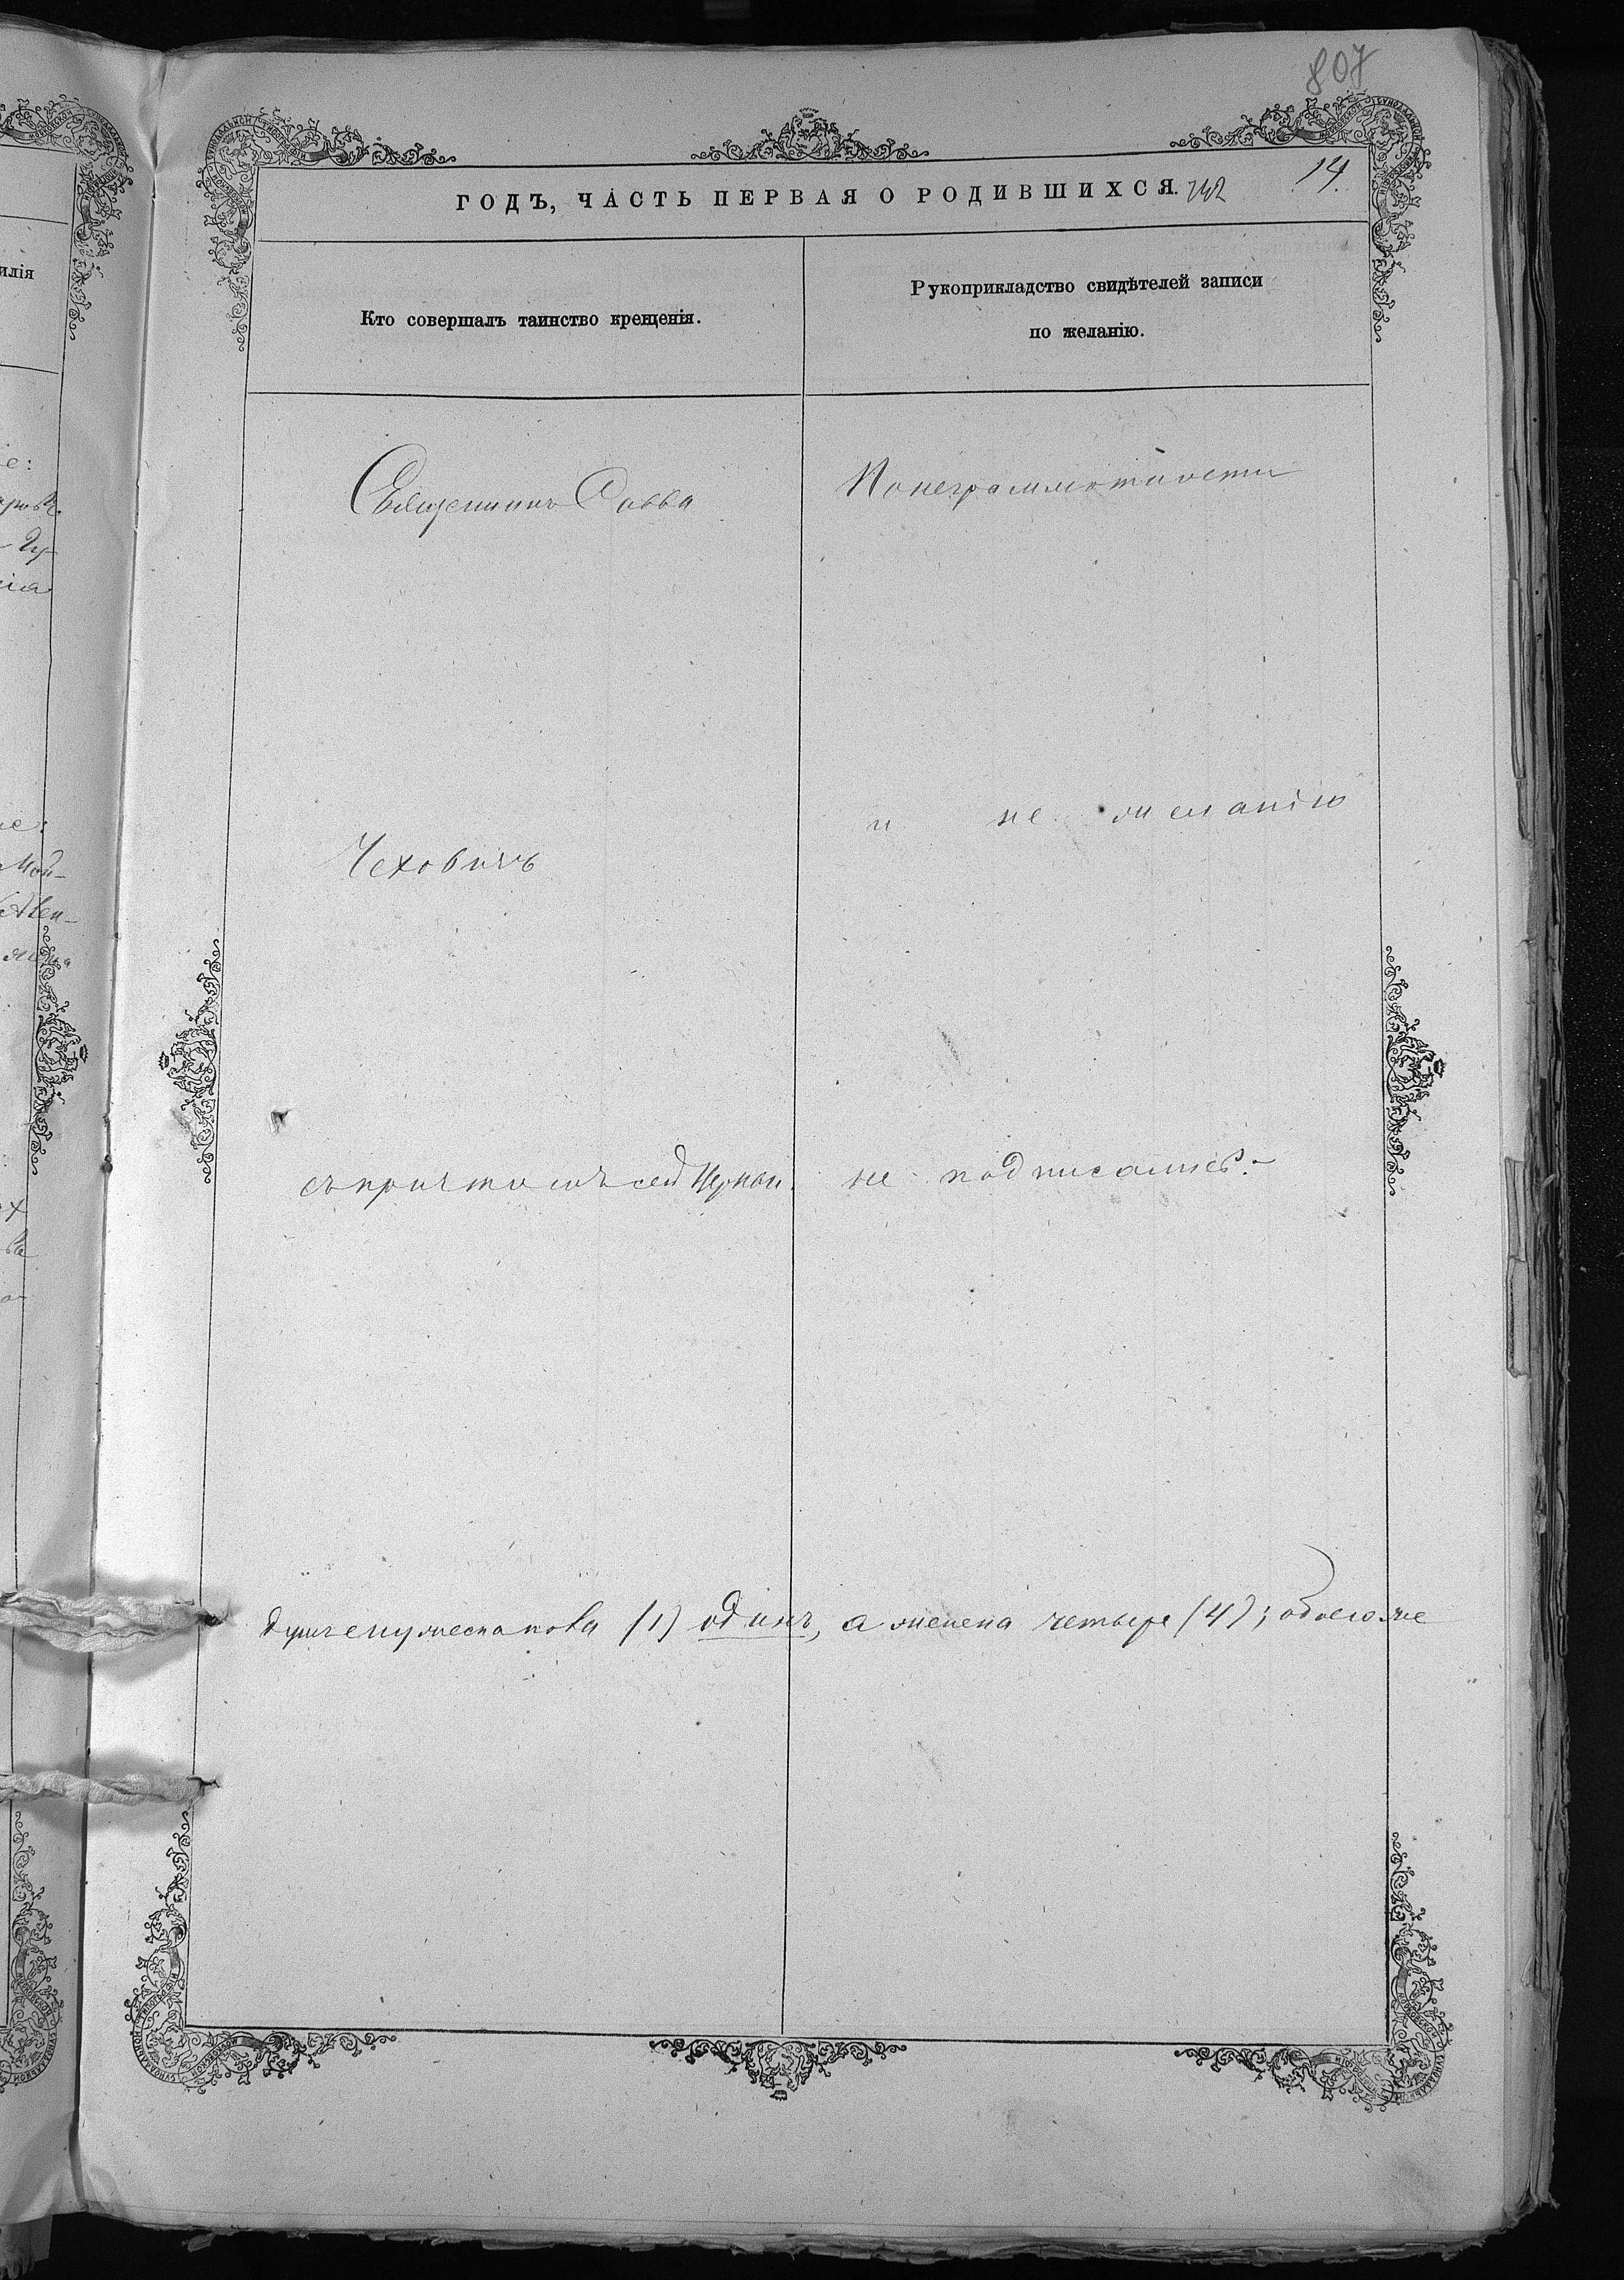 807
ГОДЪ, ЧАСТЬ ПЕРВАЯ О РОДИВШИХСЯ. 142 14.
Кто совершалъ таинство крещенія.
Рукоприкладство свидѣтелей записи
по желанію.
илія
Священникъ Савва
Понеграммотности
и не желанію
Чеховичъ
съ причтомъ сей Церкви.
не подписались.
мужеска пола (1) одинъ, а женска четыре (4); обоего же